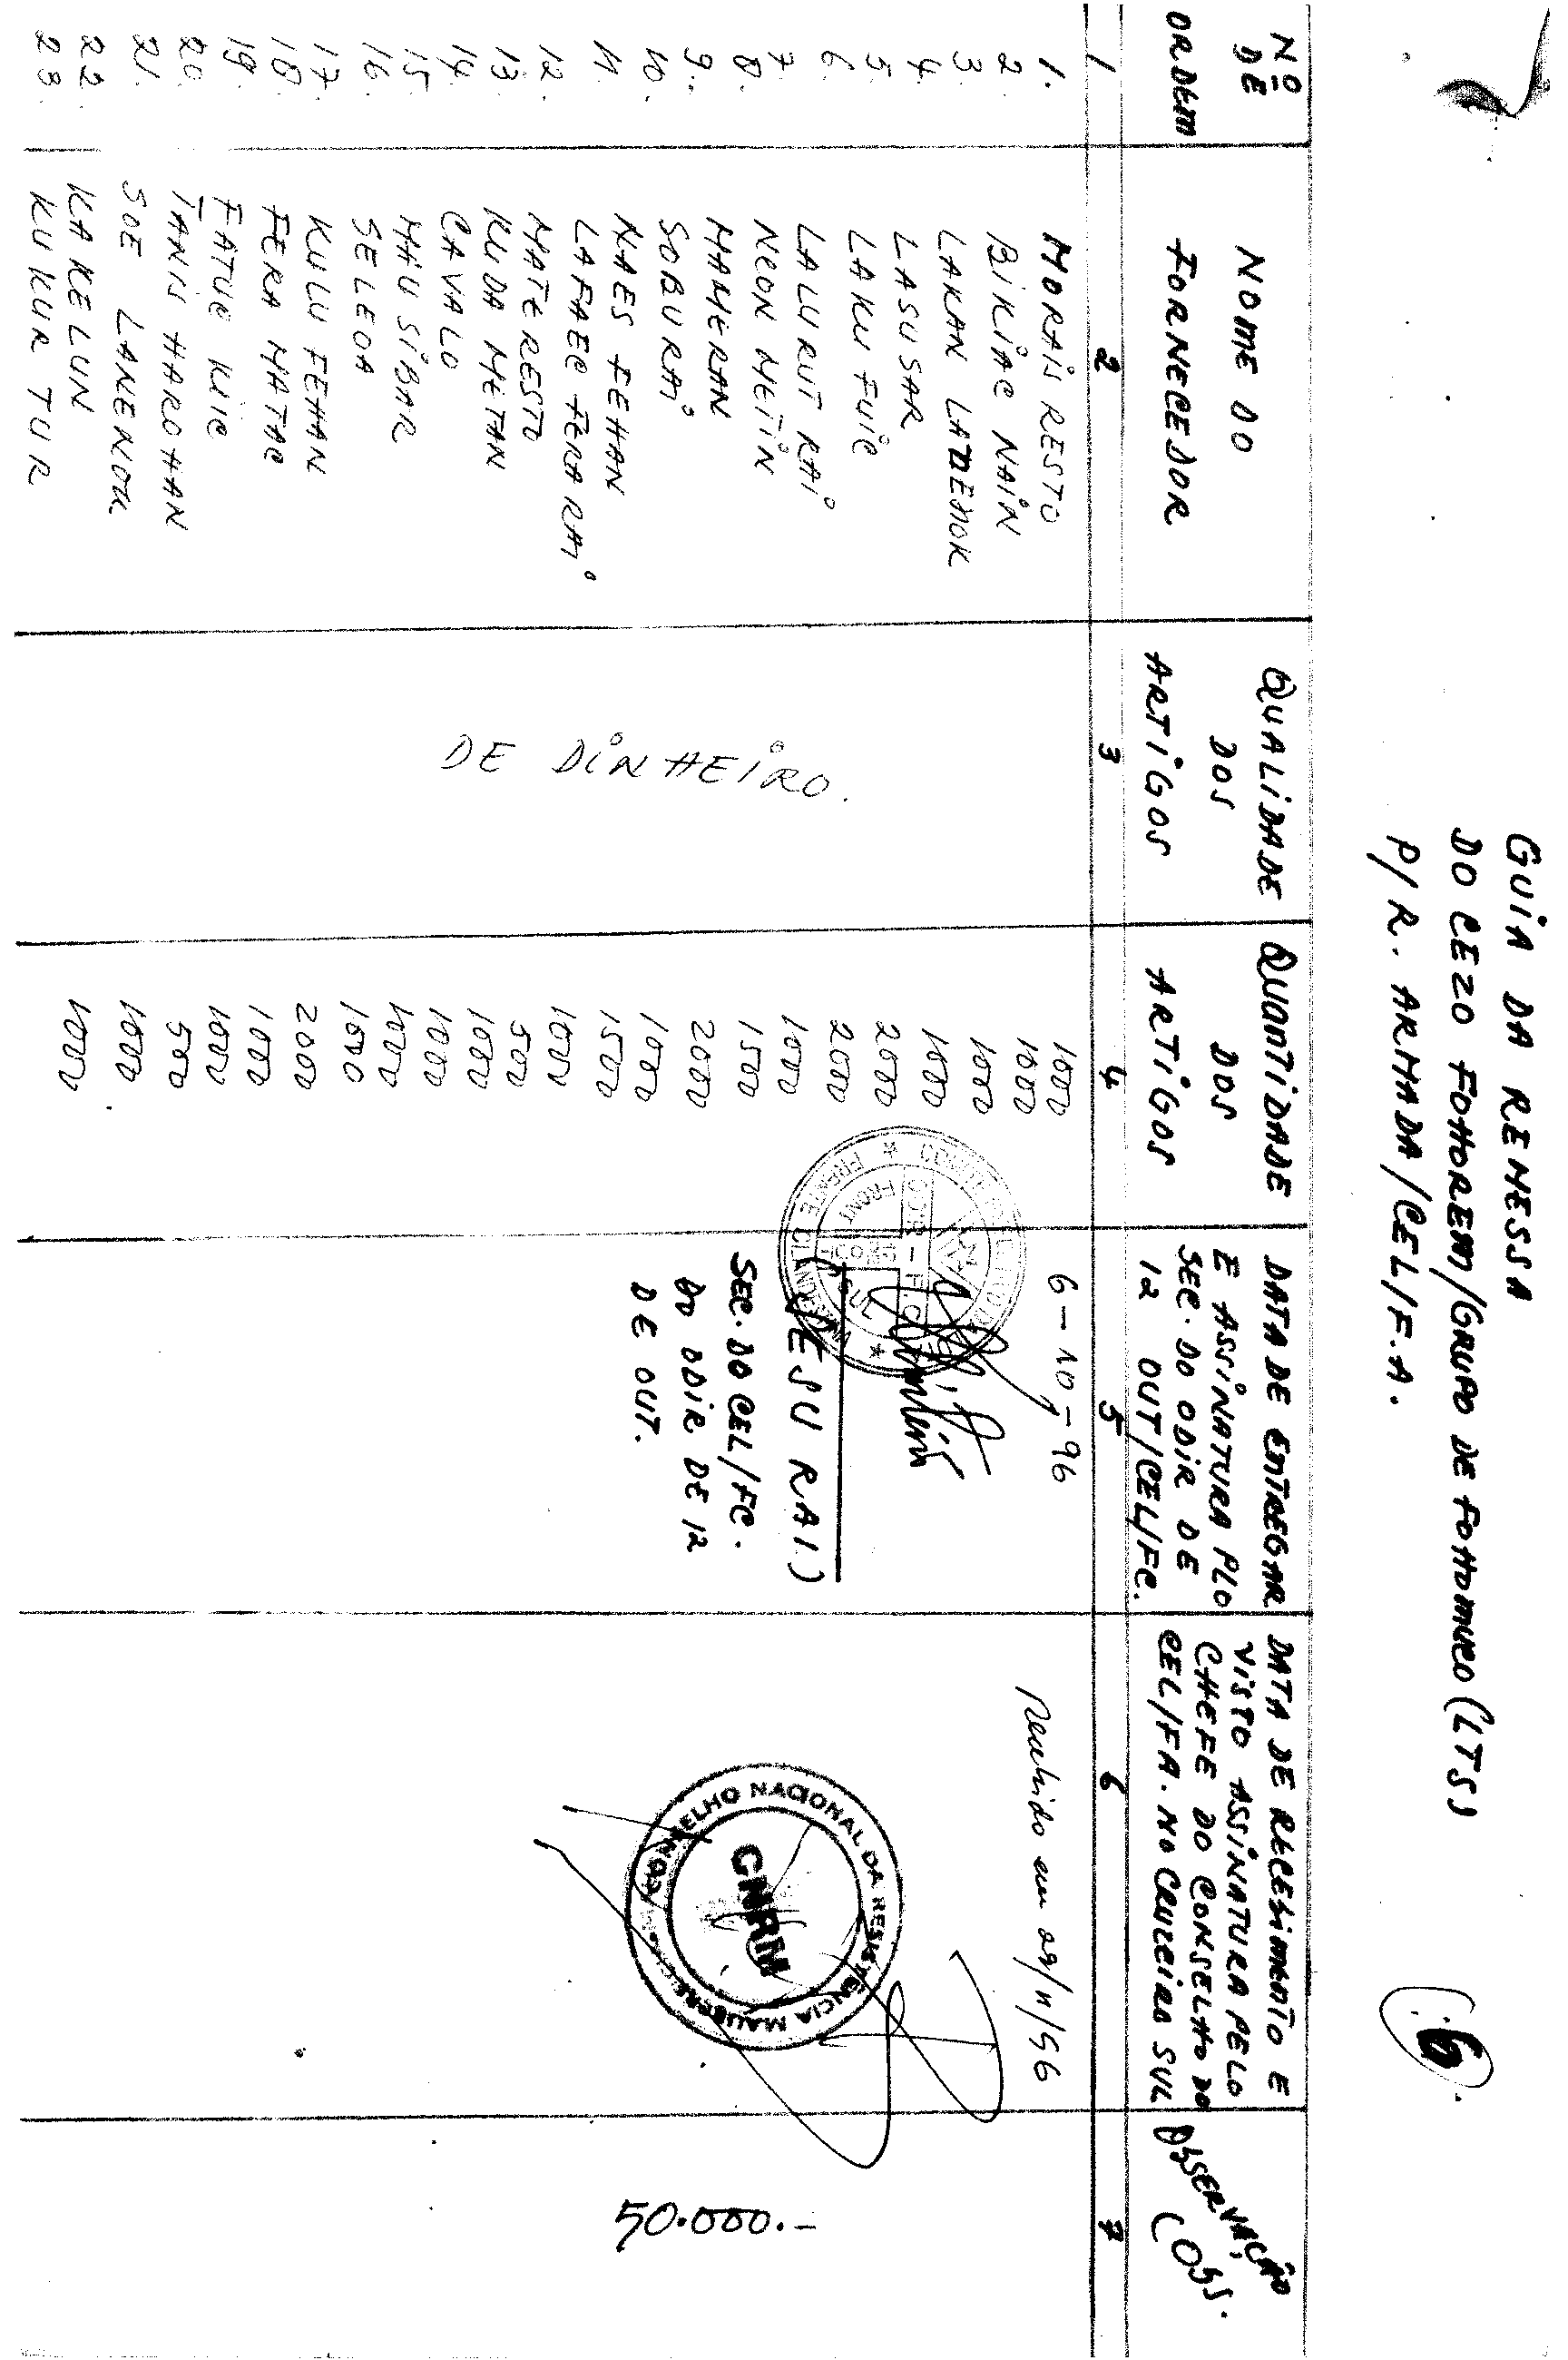 GUIA DA REMESSA
DO CEZO FOHOREM/GRUPO DE FOHOMUCO (LTS)
P/R. ARMADA/CEL/F.A.
6
Nº DE ORDEM
NOME DO FORNECEDOR
QUALIDADE DOS ARTIGOS
QUANTIDADE DOS ARTIGOS
DATA DE ENTREGAR
E ASSINATURA PLO
SEC. DO ODIR DE
12 OUT/CEL/FC.
DATA DE RECEBIMENTO E
VISTO ASSINATURA PELO
CHEFE DO CONSELHO DO
CEL/FA. NO CRUZEIRO SUL
OBSERVAÇÃO
(OBS.
1 2 3 4 5 6 7
1. MORAIS RESTO 1000
2. BIKIAC NAIN 1000
3. LAKAN LADEMOK 1000
4. LASUSAR 1000
5. LAKU FUIC 2000
6. LALURUT RAI 2000
7. NEON METIN 1000
8. MAMERAN 1500
9. SOBURAI 2000
10. NAES FEHAN 1000
11. LAFAEC FERA RAI 1500
12. MATE RESTO 1000
13. KUDA METAN 500
14. CAVALO 1000
15. MAU SIBAR 1000
16. SELEOA 1000
17. KULU FEHAN 1000
18. FERA MATAC 2000
19. FATUC KIIC 1000
20. TANIS HAROHAN 1000
21. SOE LANENOK 500
22. KAKELUN 1000
23. KUKUR TUR 1000
DE DINHEIRO.
6-10-96
(LESU RAI)
SEC. DO CEL/FC.
DO ODIR DE 12
DE OUT.
FRENTE CLANDESTINA
FRONT
Recebido em 09/11/96
CONSELHO NACIONAL DA RESISTÊNCIA MAUBERE
CNRM
50.000.-